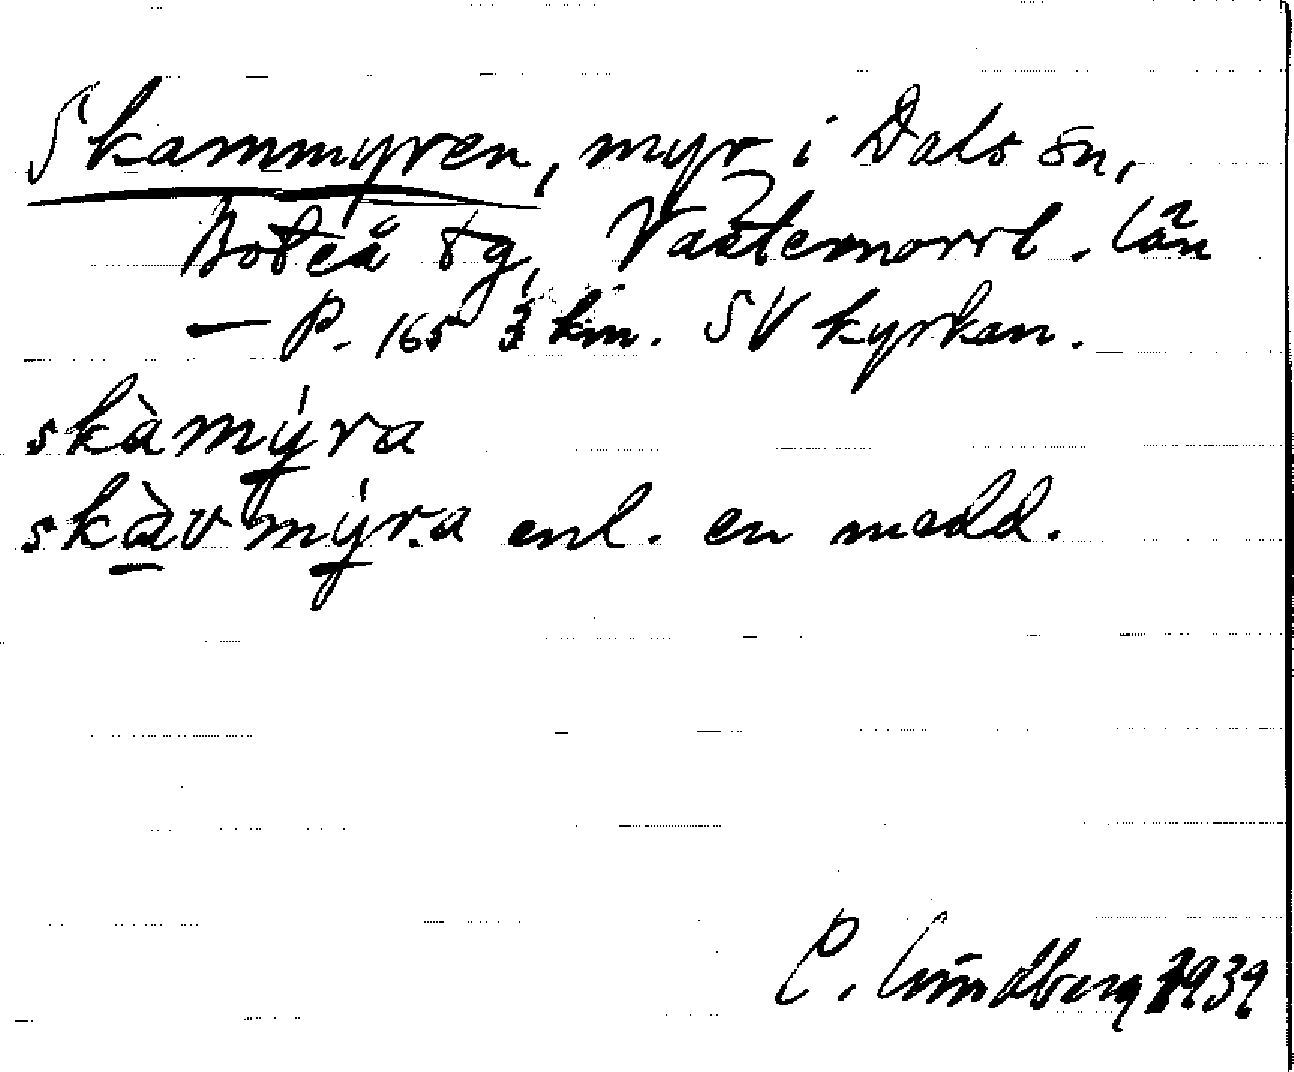 Skammyren, myr i Dals sn,
Boteå tg, Västernorrl. län
— P. 165 3 km. SV kyrkan.
skàmýra
skàvmýra enl. en medd.
C. Lundberg 1939